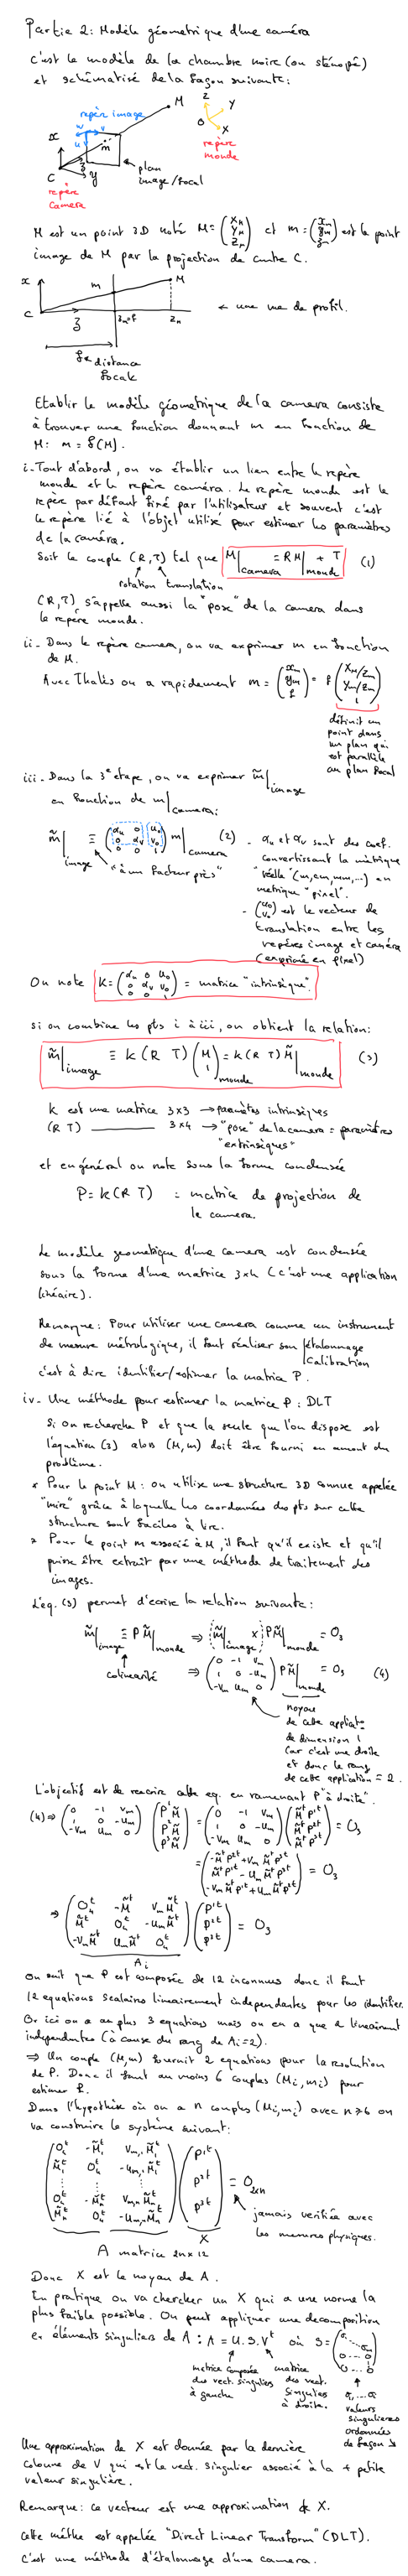 Partie 2: Modèle géometrique d'une caméra
C'est le modèle de la chambre noire (ou sténopé)
et schématisé de la façon suivante:
M
Z
Y
O
X
repère image
v
u
m
x
z
y
C
plan
image/focal
repère
monde
repère
Camera
M est un point 3D noté M = (X_M Y_M Z_M) et m = (x_m y_m z_m) est le point
image de M par la projection de centre C.
x
m
M
← une vue de profil.
C
z
z_m = f
Z_M
f = distance
focale
Etablir le modèle géometrique de la camera consiste
à trouver une fonction donnant m en fonction de
M: m = f(M).
i- Tout d'abord, on va établir un lien entre le repère
monde et le repère caméra. Le repère monde est le
repère par défaut fixé par l'utilisateur et souvent c'est
le repère lié à l'objet utilisé pour estimer les paramètres
de la caméra.
Soit le couple (R,T) tel que M|camera = R M|monde + T (1)
rotation translation
(R,T) s'appelle aussi la "pose" de la camera dans
le repère monde.
ii- Dans le repère camera, on va exprimer m en fonction
de M.
Avec Thalès on a rapidement m = (x_m y_m f) = f (X_M/Z_M Y_M/Z_M 1)
définit un
point dans
un plan qui
est parallèle
au plan focal
iii- Dans la 3e etape, on va exprimer m̃|image
en fonction de m|camera:
m̃|image ≡ (αu 0 u0 0 αv v0 0 0 1) m|camera (2)
"à un facteur près"
- αu et αv sont des coef.
convertissant la métrique
"réelle" (m, cm, mm, ...) en
metrique "pixel".
- (u0 v0) est le vecteur de
translation entre les
repères image et caméra
(exprimé en pixel)
On note K = (αu 0 u0 0 αv v0 0 0 1) = matrice "intrinsèque".
si on combine les pts i à iii, on obtient la relation:
m̃|image ≡ K (R T) (M 1)monde = K (R T) M̃|monde (3)
K est une matrice 3x3 → paramètres intrinsèques
(R T) ——— 3x4 → "pose" de la camera = paramètres
"extrinsèques"
et en général on note sous la forme condensée
P = K (R T) = matrice de projection de
la camera.
Le modèle geometrique d'une camera est condensée
sous la forme d'une matrice 3x4 (c'est une application
linéaire).
Remarque: Pour utiliser une camera comme un instrument
de mesure métrologique, il faut réaliser son |étalonnage
calibration
c'est à dire identifier/estimer la matrice P.
iv- Une méthode pour estimer la matrice P: DLT
Si on recherche P et que la seule que l'on dispose est
l'equation (3) alors (M,m) doit être fourni en amont du
problème.
* Pour le point M: on utilise une structure 3D connue appelée
"mire" grâce à laquelle les coordonnées des pts sur cette
structure sont faciles à lire.
* Pour le point m associé à M, il faut qu'il existe et qu'il
puisse être extrait par une méthode de traitement des
images.
L'eq. (3) permet d'écrire la relation suivante:
m̃|image ≡ P M̃|monde ⇒ m̃|image × P M̃|monde = O3
colinearité
⇒ (0 -1 vm 1 0 -um -vm um 0) P M̃|monde = O3 (4)
noyau
de cette applicat°
de dimension 1
car c'est une droite
et donc le rang
de cette application = 2.
L'objectif est de reecrire cette eq. en ramenant P "à droite".
(4) ⇒ (0 -1 vm 1 0 -um -vm um 0) (P¹M̃ P²M̃ P³M̃) = (0 -1 vm 1 0 -um -vm um 0) (M̃ᵗP¹ᵗ M̃ᵗP²ᵗ M̃ᵗP³ᵗ) = O3
= (-M̃ᵗP²ᵗ + vm M̃ᵗP³ᵗ M̃ᵗP¹ᵗ - um M̃ᵗP³ᵗ -vm M̃ᵗP¹ᵗ + um M̃ᵗP²ᵗ) = O3
⇒ (O4ᵗ -M̃ᵗ vm M̃ᵗ M̃ᵗ O4ᵗ -um M̃ᵗ -vm M̃ᵗ um M̃ᵗ O4ᵗ) (P¹ᵗ P²ᵗ P³ᵗ) = O3
Ai
On sait que P est composée de 12 inconnues donc il faut
12 equations scalaires lineairement independantes pour les identifier.
Or ici on a au plus 3 equations mais on en a que 2 lineairement
independantes (à cause du rang de Ai = 2).
⇒ Un couple (M,m) fournit 2 equations pour la resolution
de P. Donc il faut au moins 6 couples (Mi,mi) pour
estimer P.
Dans l'hypothèse où on a n couples (Mi,mi) avec n≥6 on
va construire le système suivant:
(O4ᵗ -M̃1ᵗ vm1 M̃1ᵗ M̃1ᵗ O4ᵗ -um1 M̃1ᵗ ⋮ ⋮ ⋮ O4ᵗ -M̃nᵗ vmn M̃nᵗ M̃nᵗ O4ᵗ -umn M̃nᵗ) (P¹ᵗ P²ᵗ P³ᵗ) = O2xn
X
jamais verifiée avec
les mesures physiques.
A matrice 2n x 12
Donc X est le noyau de A.
En pratique on va chercher un X qui a une norme la
plus faible possible. On peut appliquer une decomposition
en éléments singuliers de A: A = U.S.Vᵗ où S = (σ1 ... σn 0 ... 0 0 ... 0)
matrice composée
des vect. singuliers
à gauche
matrice
des vect.
singuliers
à droite.
σ1 ... σn
valeurs
singulieres
ordonnées
de façon ↘
Une approximation de X est donnée par la dernière
colonne de V qui est le vect. singulier associé à la + petite
valeur singulière.
Remarque: ce vecteur est une approximation de X.
Cette méthe est appelée "Direct Linear Transform" (DLT).
C'est une méthode d'étalonnage d'une camera.